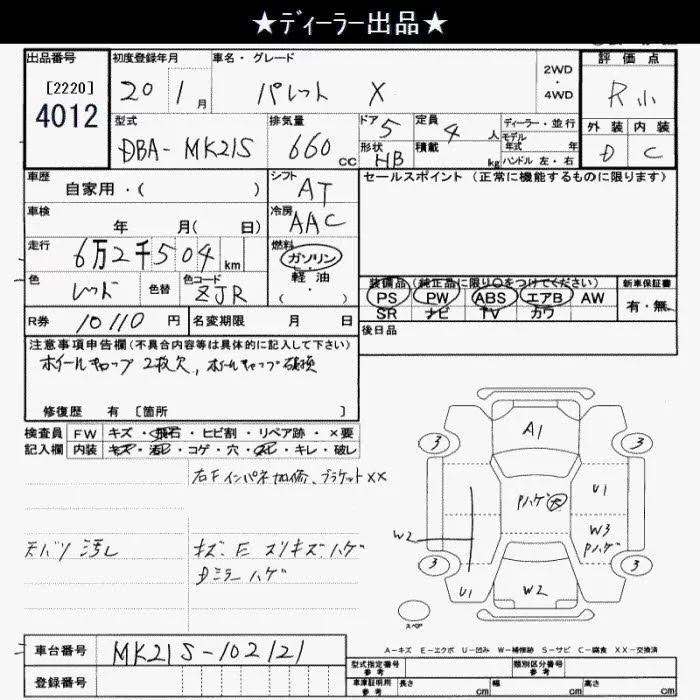 ★ディーラー出品★
出品番号 初度登録年月 車名・グレード 評価点
[2220] 20 1月 パレット X 2WD・4WD R小
4012 外装 内装
型式 排気量 ドア 5 定員 4人 ディーラー・並行 D C
DBA-MK21S 660cc 形状 HB 積載 kg モデル年式 年
ハンドル 左・右
車歴 シフト セールスポイント (正常に機能するものに限ります)
自家用・( ) AT
車検 冷房
年 月( 日) AAC
走行 燃料
6万2千504km ガソリン
色 色替 色コード 軽油 装備品(純正品に限り○をつけてください) 新車保証書
レッド ZJR ( ) PS PW ABS エアB AW 有・無
SR ナビ TV カワ
R券 10110円 名変期限 月 日 後日品
注意事項申告欄(不具合内容等は具体的に記入して下さい)
ホイールキャップ 2枚欠, ホイールキャップ破損
修復歴 有 [箇所 ]
検査員 FW キズ・飛石・ヒビ割・リペア跡・×要
記入欄 内装 キズ・汚レ・コゲ・穴・スレ・キレ・破レ
右Fインパネ加修、ブラケットXX
天バリ汚レ キズ・E スリキズハゲ
Dミラーハゲ
A1
3 3
Pハゲ 大 U1
W2 W3
Pハゲ
3 3
U1 W2
スペア
A-キズ E-エクボ U-凹み W-補修跡 S-サビ C-腐食 XX-交換済
車台番号 MK21S-102121 型式指定番号 参考 類別区分番号 参考
登録番号 車庫証明用 参考 長さ cm 幅 cm 高さ cm